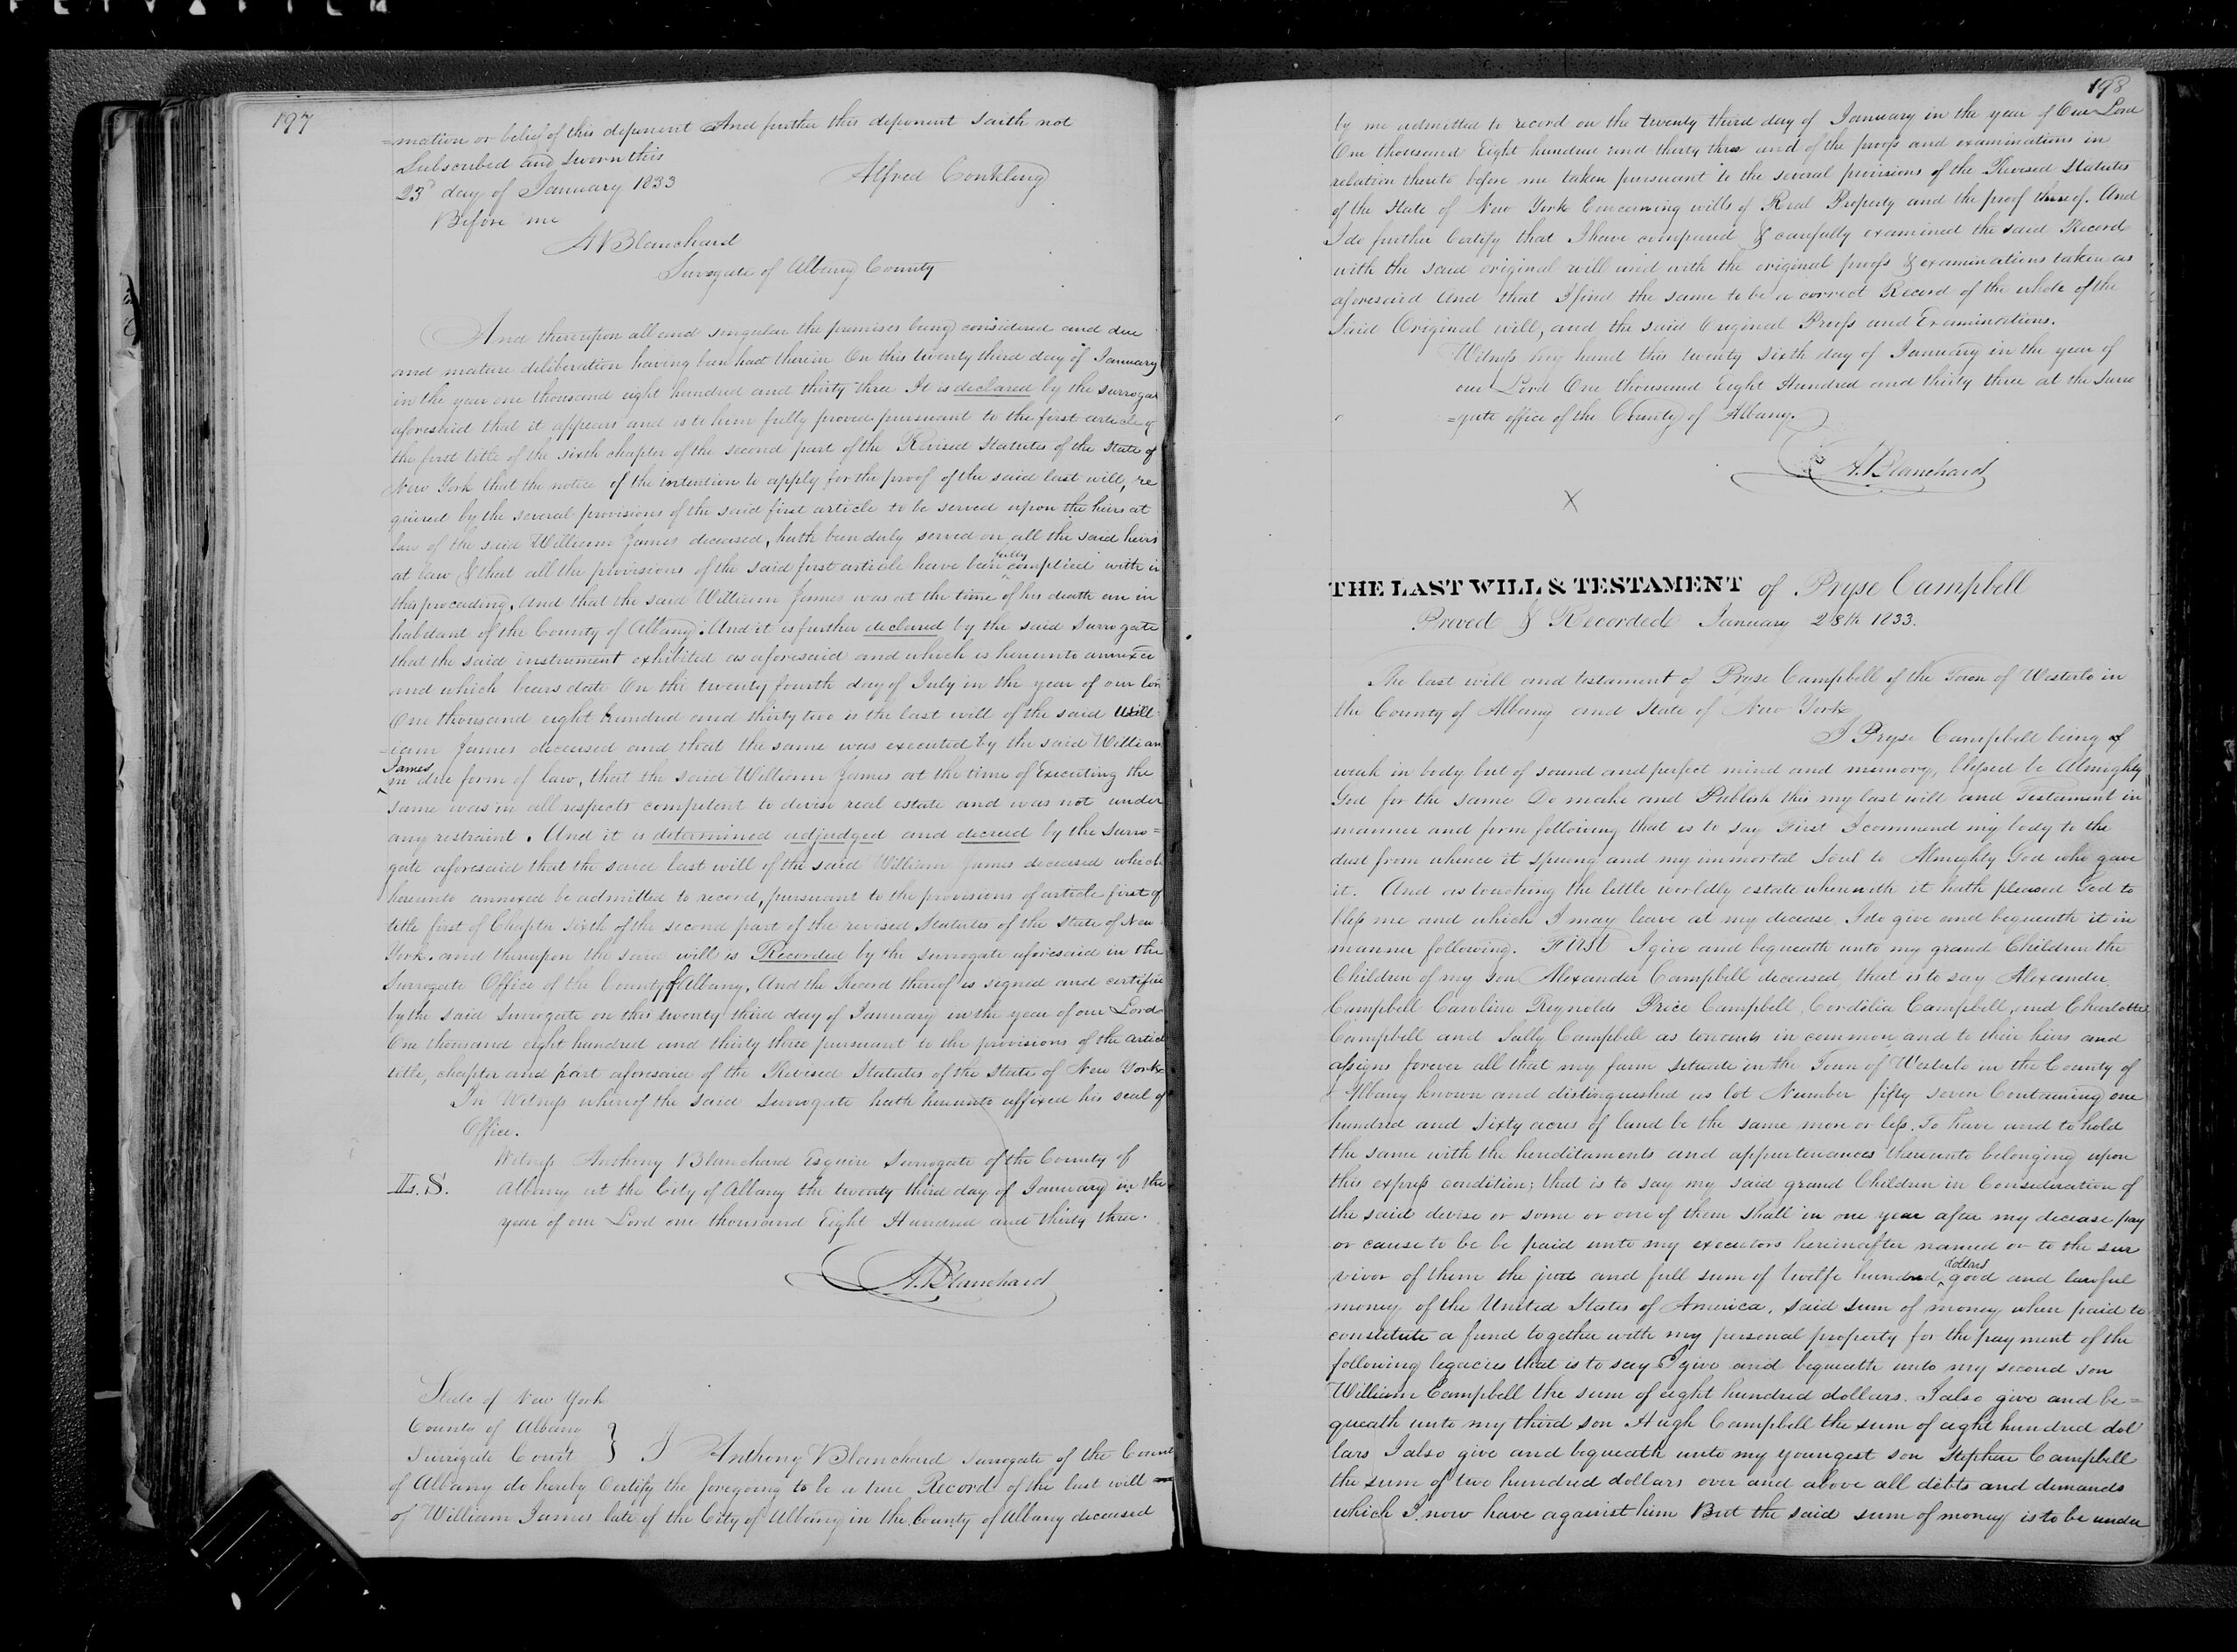 197
=mation or belief of this deponent And further this deponent saith not
Subscribed and sworn this
23d day of January 1833
Alfred Conkling
Before me
A Blanchard
Surrogate of Albany County
And thereupon all and singular the premises being considered and due
and mature deliberation having been had therein On this twenty third day of January
in the year one thousand eight hundred and thirty three It is declared by the surrogat
aforesaid that it appears and is to him fully proved pursuant to the first article of
the first title of the sixth chapter of the second part of the Revised Statutes of the State of
New York that the notice of the intention to apply for the proof of the said last will, re
quired by the several provisions of the said first article to be served upon the heirs at
law of the said William James deceased, hath been duly served on all the said heirs
at law & that all the provisions of the said first article have been fully complied with in
this proceeding. And that the said William James was at the time of his death an in
habitant of the County of Albany. And it is further declared by the said Surrogate
that the said instrument exhibited as aforesaid and which is hereunto annexed
and which bears date On the twenty fourth day of July in the year of our Lor
One thousand eight hundred and thirty two is the last will of the said Will
=iam James deceased and that the same was executed by the said William
James in due form of law, that the said William James at the time of Executing the
same was in all respects competent to devise real estate and was not under
any restraint. And it is determined adjudged and decreed by the Surro=
gate aforesaid that the said last will of the said William James deceased which
hereunto annexed be admitted to record, pursuant to the provisions of article first of
title first of Chapter sixth of the second part of the revised Statutes of the State of New
York. and thereupon the said will is Recorded by the surrogate aforesaid in the
Surrogate Office of the County of Albany. And the Record thereof is signed and certifie
by the said Surrogate on this twenty third day of January in the year of our Lord
One thousand eight hundred and thirty three pursuant to the provisions of the articl
title, chapter and part aforesaid of the Revised Statutes of the State of New York
In Witness whereof the said Surrogate hath hereunto affixed his seal of
Office.
Witness Anthony Blanchard Esquire Surrogate of the County of
L. S. Albany at the City of Albany the twenty third day of January in the
year of our Lord one thousand Eight Hundred and thirty three.
A. Blanchard
State of New York
County of Albany
Surrogate Court } I Anthony Blanchard Surrogate of the Count
of Albany do hereby Certify the foregoing to be a true Record of the last will
of William James late of the City of Albany in the County of Albany deceased
198
by me admitted to record on the twenty third day of January in the year of Our Lord
One thousand Eight hundred and thirty three and of the proofs and examinations in
relation thereto before me taken pursuant to the several provisions of the Revised Statutes
of the State of New York Concerning wills of Real Property and the proof thereof. And
I do further Certify that I have compared & carefully examined the said Record
with the said original will and with the original proofs & examinations taken as
aforesaid And that I find the same to be a correct Record of the whole of the
Said Original will, and the said Original Proofs and Examinations.
Witness my hand this twenty sixth day of January in the year of
our Lord One thousand Eight Hundred and thirty three at the Surro
=gate office of the County of Albany.
A. Blanchard
X
THE LAST WILL & TESTAMENT of Pryse Campbell
Proved & Recorded January 28th 1833.
The last will and testament of Pryse Campbell of the Town of Westerlo in
the County of Albany and State of New York
I Pryse Campbell being of
weak in body but of sound and perfect mind and memory, blessed be Almighty
God for the same Do make and Publish this my last will and Testament in
manner and form following that is to say First I commend my body to the
dust from whence it sprung and my immortal Soul to Almighty God who gave
it. And as touching the little worldly estate wherewith it hath pleased God to
bless me and which I may leave at my decease I do give and bequeath it in
manner following. First I give and bequeath unto my grand Children the
Children of my son Alexander Campbell deceased, that is to say Alexander
Campbell Caroline Reynolds Price Campbell, Cordelia Campbell, and Charlotte
Campbell and Sally Campbell as tenants in common and to their heirs and
assigns forever all that my farm situate in the Town of Westerlo in the County of
Albany known and distinguished as lot Number fifty seven Containing one
hundred and sixty acres of land be the same more or less. To have and to hold
the same with the hereditaments and appurtenances thereunto belonging upon
this express condition; that is to say my said grand Children in Consideration of
the said devise or some or one of them shall in one year after my decease pay
or cause to be be paid unto my executors hereinafter named or to the sur
vivor of them the just and full sum of twelfe hundred dollars good and lawful
money of the United States of America, said sum of money when paid to
constitute a fund together with my personal property for the payment of the
following legacies that is to say I give and bequeath unto my second son
William Campbell the sum of eight hundred dollars. I also give and be=
queath unto my third son Hugh Campbell the sum of eight hundred dol
lars I also give and bequeath unto my youngest son Stephen Campbell
the sum of two hundred dollars over and above all debts and demands
which I now have against him But the said sum of money is to be under